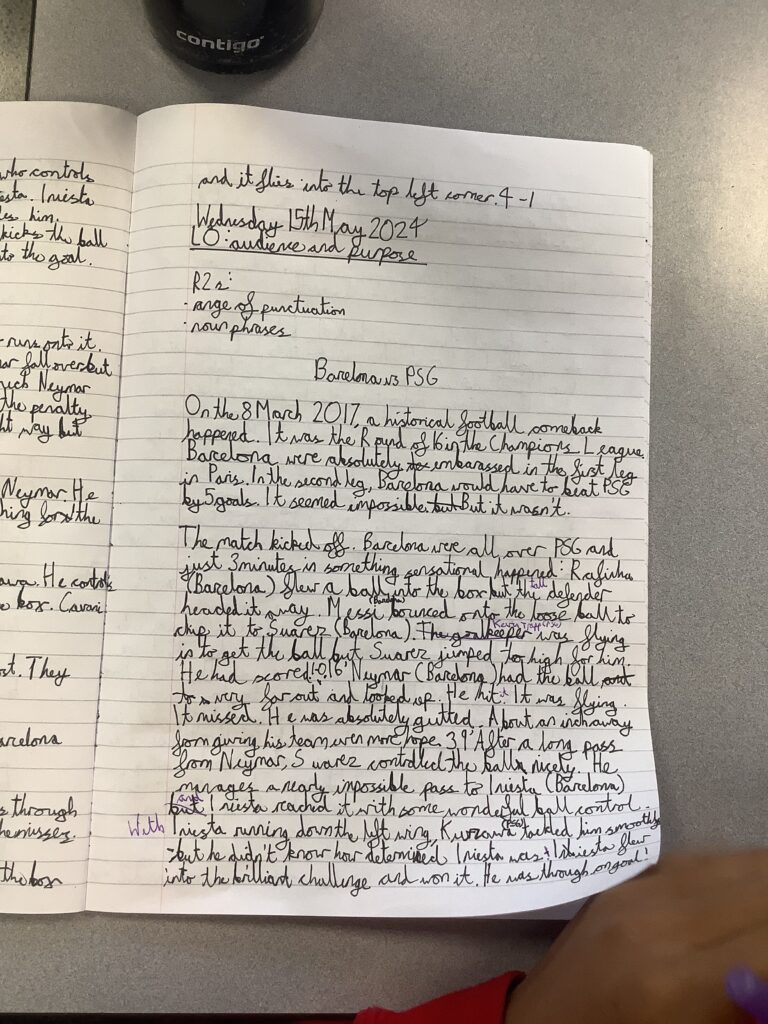 contigo
who controls
esta. Iniesta
les him.
kicks the ball
to the goal.
runs onto it.
ar fall over but
Neymar
the penalty
ht way but
Neymar. He
hing for the
awa. He controls
e box. Cavani
st. They
arcelona
s through
he misses.
the box
and it flies into the top left corner. 4-1
Wednesday 15th May 2024
LO: audience and purpose
R2s:
· range of punctuation
· noun phrases
Barcelona vs PSG
On the 8 March 2017, a historical football comeback
happened. It was the Round of 16 in the Champions League.
Barcelona were absolutely embarassed in the first leg
in Paris. In the second leg, Barcelona would have to beat PSG
by 5 goals. It seemed impossible. But it wasn't.
The match kicked off. Barcelona were all over PSG and
just 3 minutes in something sensational happened: Rafinha
(Barcelona) flew a ball into the box but the tall defender
headed it away. Messi (Barcelona) bounced onto the loose ball to
chip it to Suarez (Barcelona). The goalkeeper Kevin Trapp was flying
in to get the ball but Suarez jumped to high for him.
He had scored! 1-0. 16' Neymar (Barcelona) had the ball
very far out and looked up. He hit it. It was flying.
It missed. He was absolutely gutted. About an inch away
from giving his team even more hope. 39' After a long pass
from Neymar, Suarez controlled the ball nicely. He
manages a nearly impossible pass to Iniesta (Barcelona)
and Iniesta reached it with some wonderful ball control.
With Iniesta running down the left wing, Kurzawa (PSG) tackled him smoothly
- but he didn't know how determined Iniesta was! Iniesta flew
into the brilliant challenge and won it. He was through on goal!